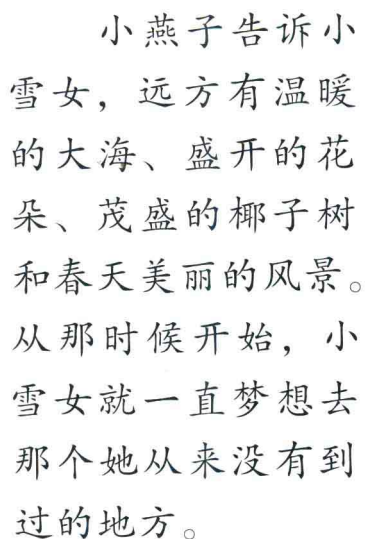 小燕子告诉小
雪女，远方有温暖
的大海、盛开的花
朵、茂盛的椰子树
和春天美丽的风景。
从那时候开始，小
雪女就一直梦想去
那个她从来没有到
过的地方。